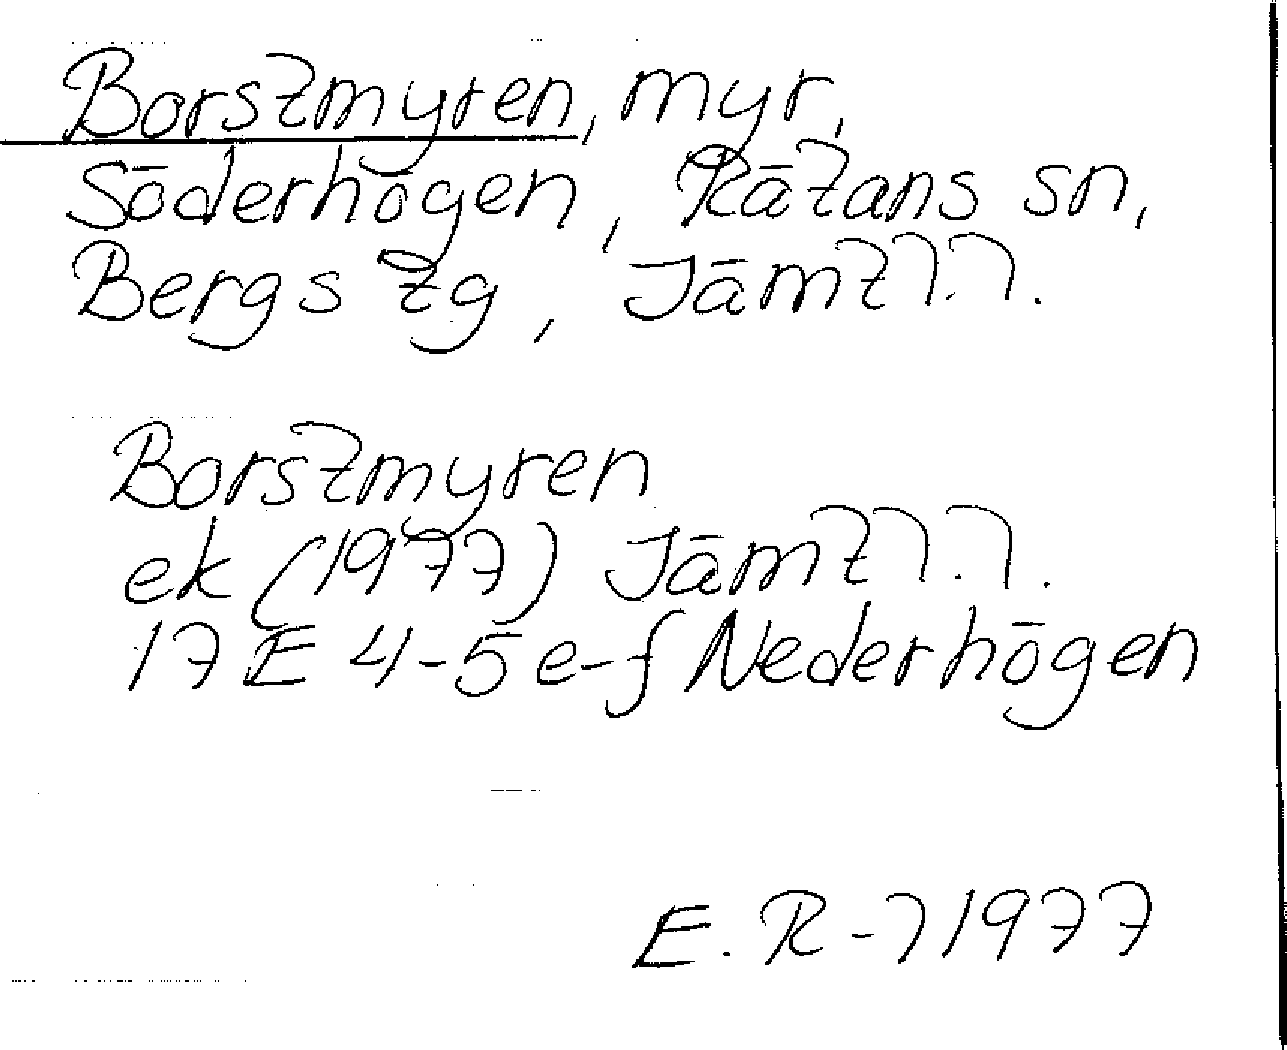 Borstmyren, myr,
Söderhögen, Rätans sn,
Bergs tg, Jämtl.l.
Borstmyren
ek (1977) Jämtl.l.
17E 4-5 e-f Nederhögen
E. R-l 1977